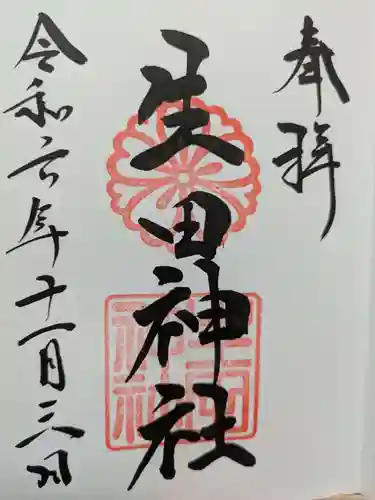 奉拝
生田神社
令和六年十一月三日
生田神社